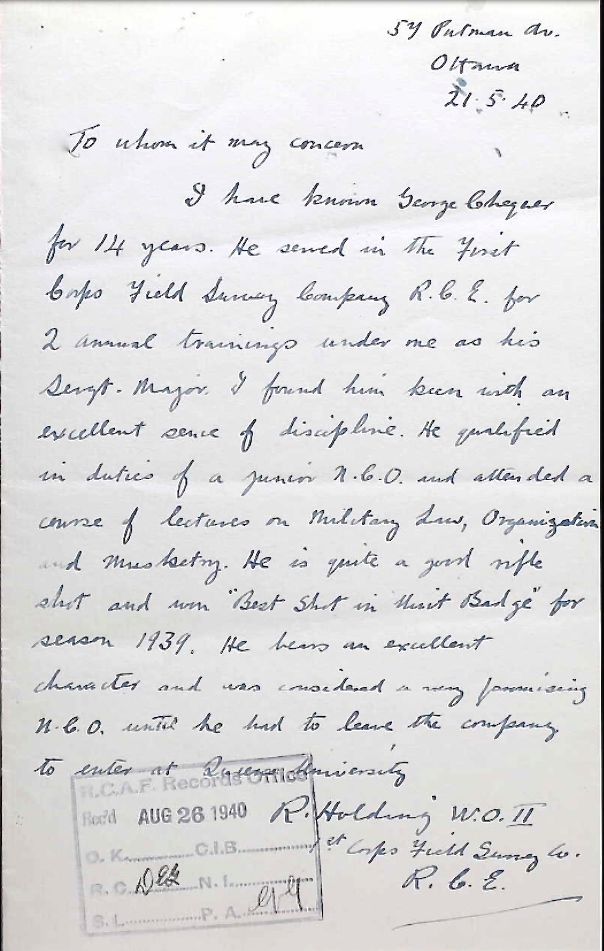 57 Putman Av.
Ottawa
21·5·40
To whom it may concern
I have known George Chequer
for 14 years. He served in the First
Corps Field Survey Company R.C.E. for
2 annual trainings under me as his
Sergt. Major. I found him keen with an
excellent sense of discipline. He qualified
in duties of a junior N.C.O. and attended a
course of lectures on Military Law, Organization
and Musketry. He is quite a good rifle
shot and won "Best Shot in Unit Badge" for
season 1939. He bears an excellent
character and was considered a very promising
N.C.O. until he had to leave the company
to enter at Queens University
R. Holding W.O. II
1st Corps Field Survey Co.
R.C.E.
R.C.A.F. Records Office
Rec'd AUG 26 1940
O.K. C.I.B.
R.C. N.I.
S.L. P.A.